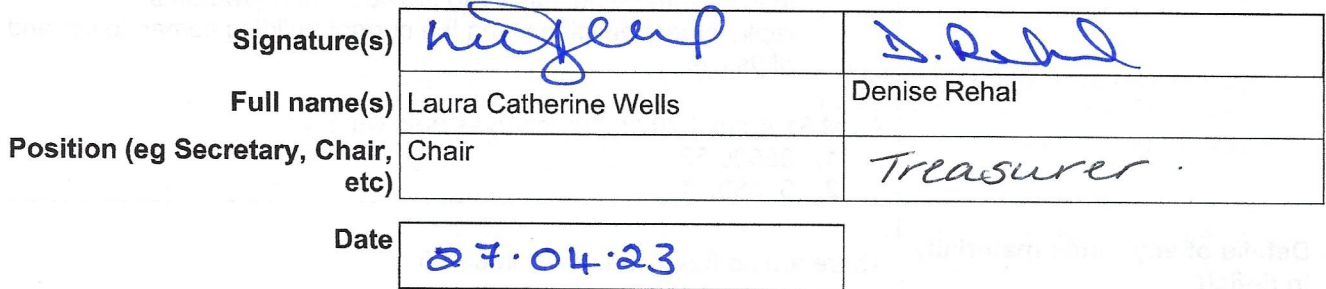 Signature(s) D. Rehal
Full name(s) Laura Catherine Wells Denise Rehal
Position (eg Secretary, Chair, etc) Chair Treasurer.
Date 27.04.23